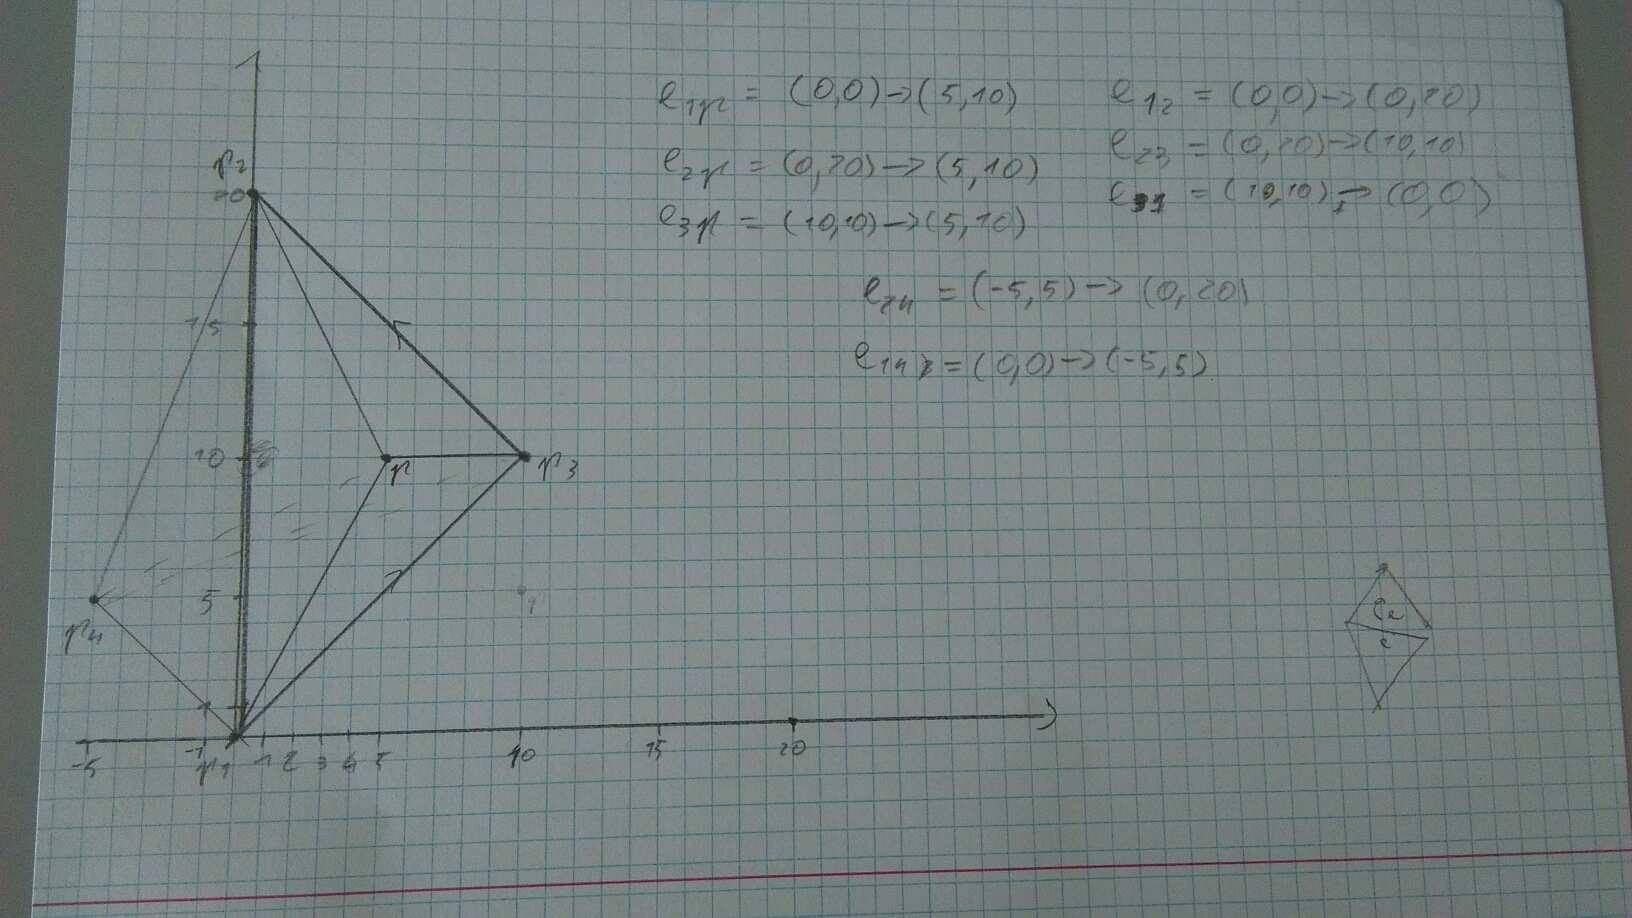 e1p = (0,0)->(5,10)
e2p = (0,20)->(5,10)
e3p = (10,10)->(5,10)
e12 = (0,0)->(0,20)
e23 = (0,20)->(10,10)
e31 = (10,10)->(0,0)
e24 = (-5,5)->(0,20)
e14 = (0,0)->(-5,5)
p2
20
15
10
p
p3
5
p4
1
-5 -1 p1 1 2 3 4 5 10 15 20
e